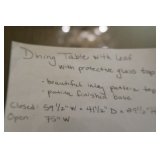 Dining Table with leaf
with protective glass top
• beautiful inlay pattern top
• patina finished base
Closed: 59 1/2" W x 41 1/2" D x
Open 75" W